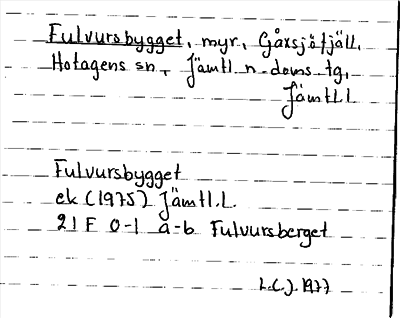 Fulvursbygget, myr, Gåxsjöfjäll,
Hotagens sn, Jämtl n doms tg,
Jämtl l
Fulvursbygget
ek (1975) Jämtl. L.
21 F 0-1 a-b Fulvursberget
L.C.J. 1977